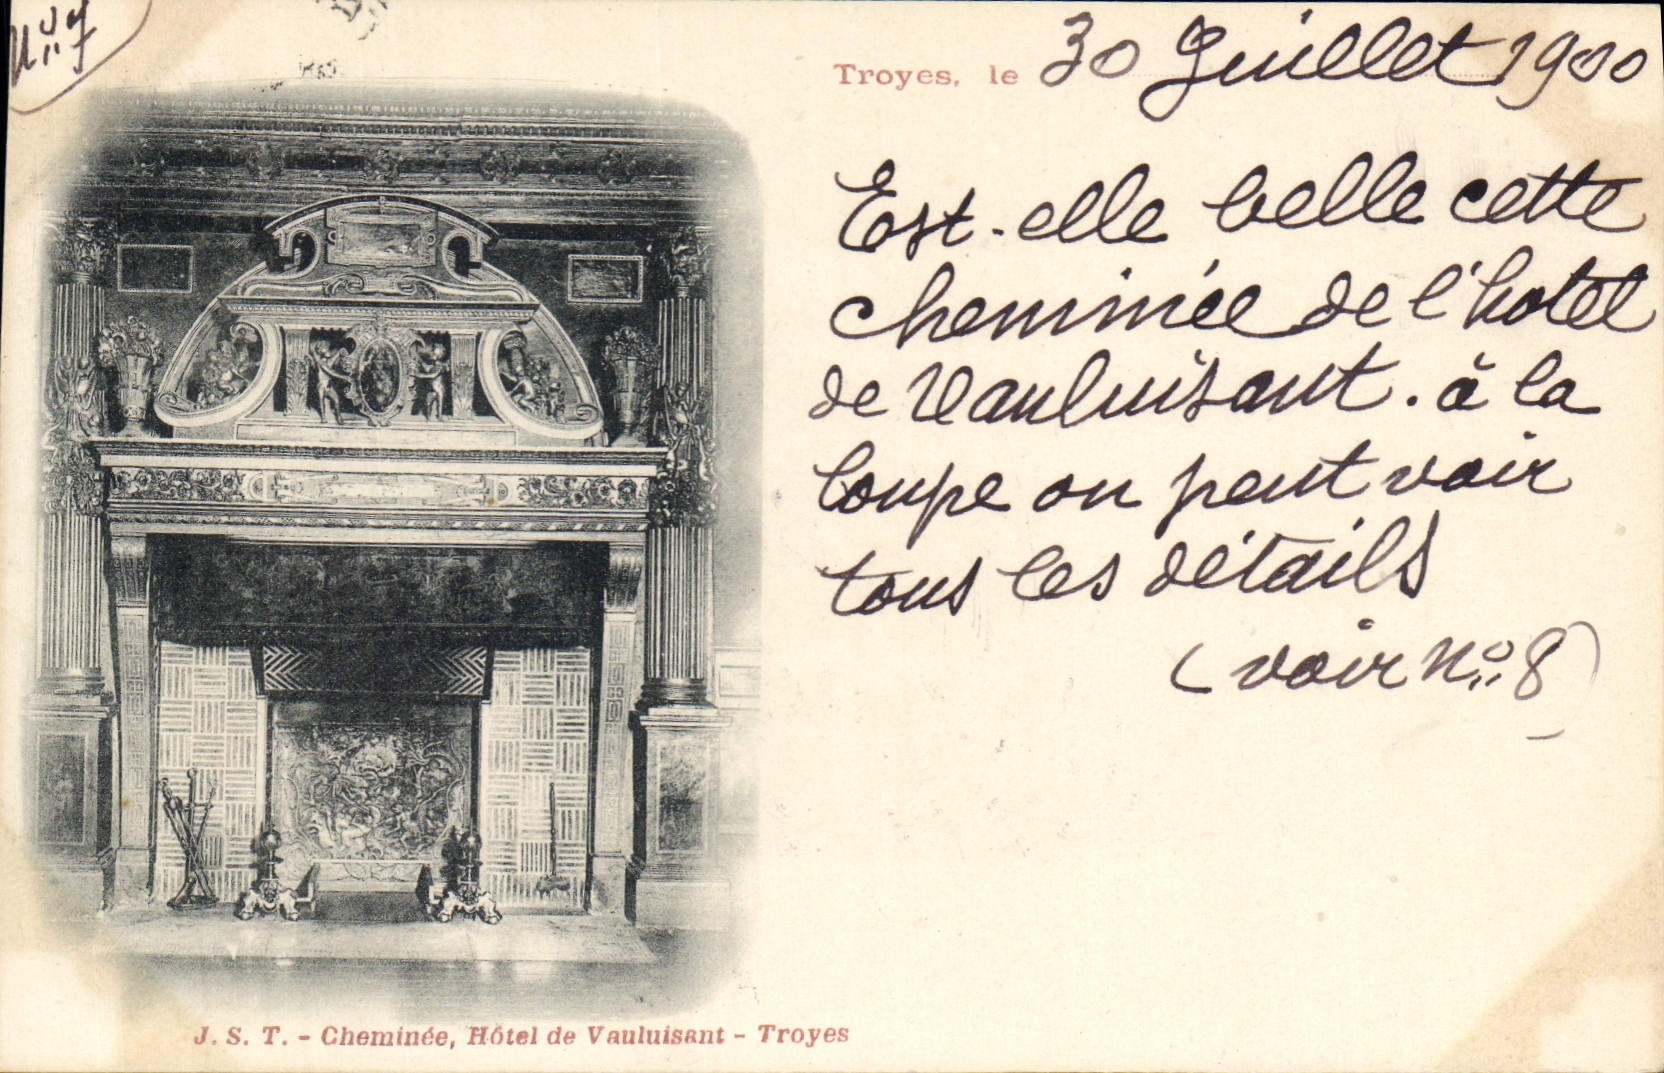 No 7
Troyes, le 30 Juillet 1900
Est-elle belle cette
cheminée de l'hotel
de Vauluisant. à la
loupe on peut voir
tous les détails
(voir No 8)
J. S. T. - Cheminée, Hôtel de Vauluisant - Troyes